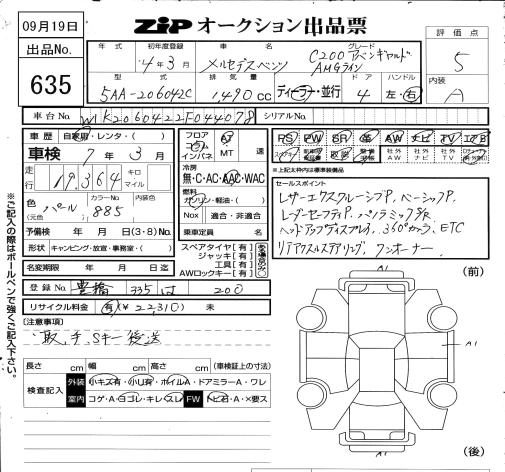 09月19日
ZIP オークション出品票
出品No. 635
年式 初年度登録 車名 グレード
4年3月 メルセデスベンツ C200アバンギャルド AMGライン
評価点 5
型式 排気量 ドア ハンドル
5AA-206042C 1,490cc ディーラー・並行 4 左・右
内装 A
車台No. W1K2060422F044078 シリアルNo.
車歴 自家用・レンタ・( )
車検 7年3月
走行 19,364 キロ マイル
色(元色) パール カラーNo. 885 内装色
予備検 年 月 日(3・8)No.
形状 キャンピング・放宣・事務室・( )
名変期限 年 月 日迄
フロア コラム インパネ AT MT 速
冷房 無・C・AC・AAC・WAC
燃料 ガソリン・軽油・( )
Nox 適合・非適合
乗車定員 名
スペアタイヤ[有]
ジャッキ[有]
工具[有]
AWロックキー[有]
PS PW SR 革 AW ナビ TV エアB
社外AW 社外ナビ 社外TV
※上記太枠内は標準装備品
セールスポイント
レザーエクスクルーシブP、ベーシックP、
レーダーセーフティP、パノラミックSR
ヘッドアップディスプレイ、360°カメラ、ETC
リアアクスルステアリング、ワンオーナー
登録No. 豊橋 335 は 200
リサイクル料金 有(¥22,310) 未
[注意事項]
取、手、Sキー後送
長さ cm 幅 cm 高さ cm (車検証上の寸法)
検査記入 外装 小キズ有・小U有・ホイルA・ドアミラーA・ワレ
室内 コゲ・A・ヨゴレ・キレ・スレ FW トビ石・A・×要ス
※ご記入の際はボールペンで強くご記入下さい。
(前)
A1
A1
A1
(後)